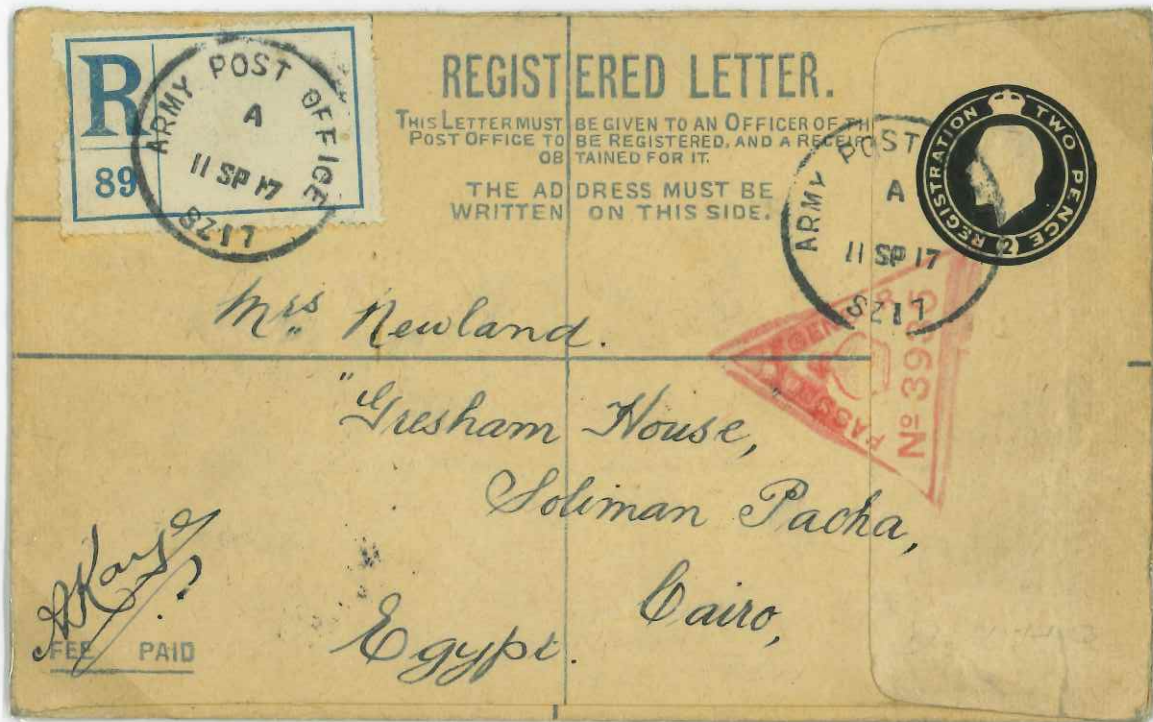 R
89
ARMY POST OFFICE
A
11 SP 17
SZ17
REGISTERED LETTER.
THIS LETTER MUST BE GIVEN TO AN OFFICER OF TH
POST OFFICE TO BE REGISTERED, AND A RECEIPT
OBTAINED FOR IT.
THE ADDRESS MUST BE
WRITTEN ON THIS SIDE.
REGISTRATION TWO PENCE
2
ARMY POST
A
11 SP 17
SZ17
PASSED
CENSOR
No 39
Mrs Newland.
"Gresham House,
Soliman Pacha,
Cairo,
Egypt.
FEE PAID